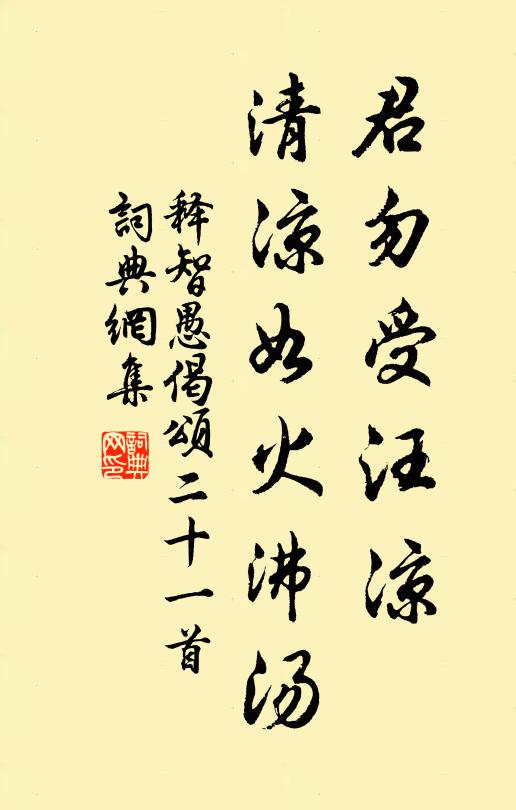 君勿受汪凉
清凉如火沸汤
释智愚偈颂二十一首
詞典網集
詞典网印